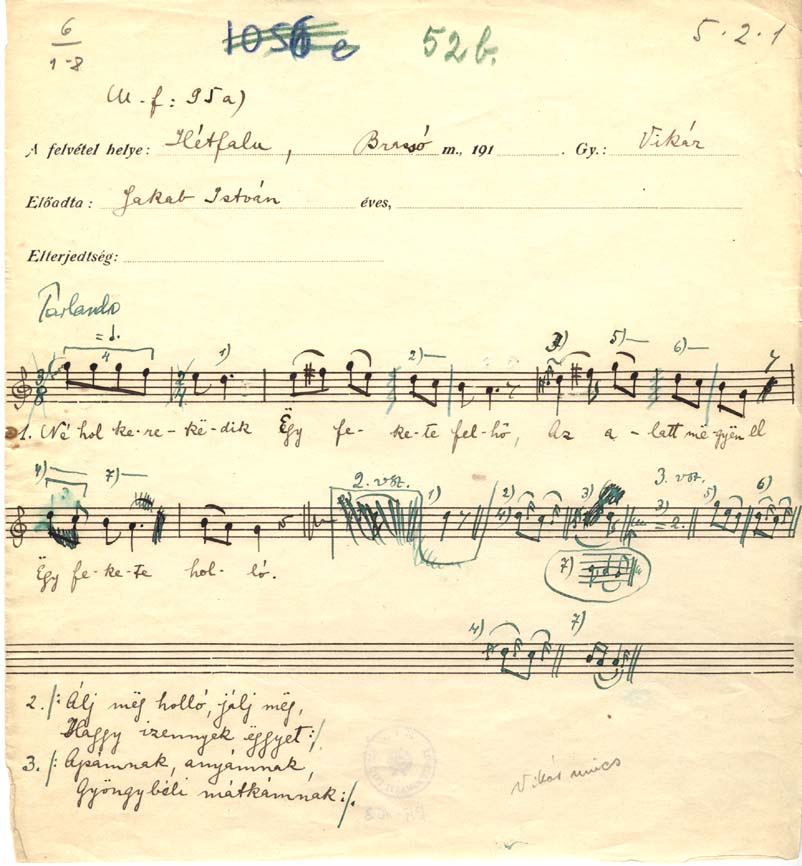 6
1-8
1056 e
52b.
5.2.1
M.f: 95a)
A felvétel helye: Hétfalu, Brassó m., 191 . Gy.: Vikár
Előadta: Jakab István éves,
Elterjedtség:
Parlando
= d.
4 1) 2) 3) 5) 6) 7
1. Né hol ke-re-kë-dik Ëgy fe-ke-te fel-hő, Az a-latt më-gyën el
4) 7) 2. vsz. 1) 2) 3) 3. vsz. 5) 6)
4) 3) = 2.
Ëgy fe-ke-te hol-ló.
7)
4) 7)
2. /: Álj mëg holló, jálj mëg,
Haggy izennyek ëggyet :/
3. /: Apámnak, anyámnak,
Gyöngybéli mátkámnak :/.
Vikár nincs